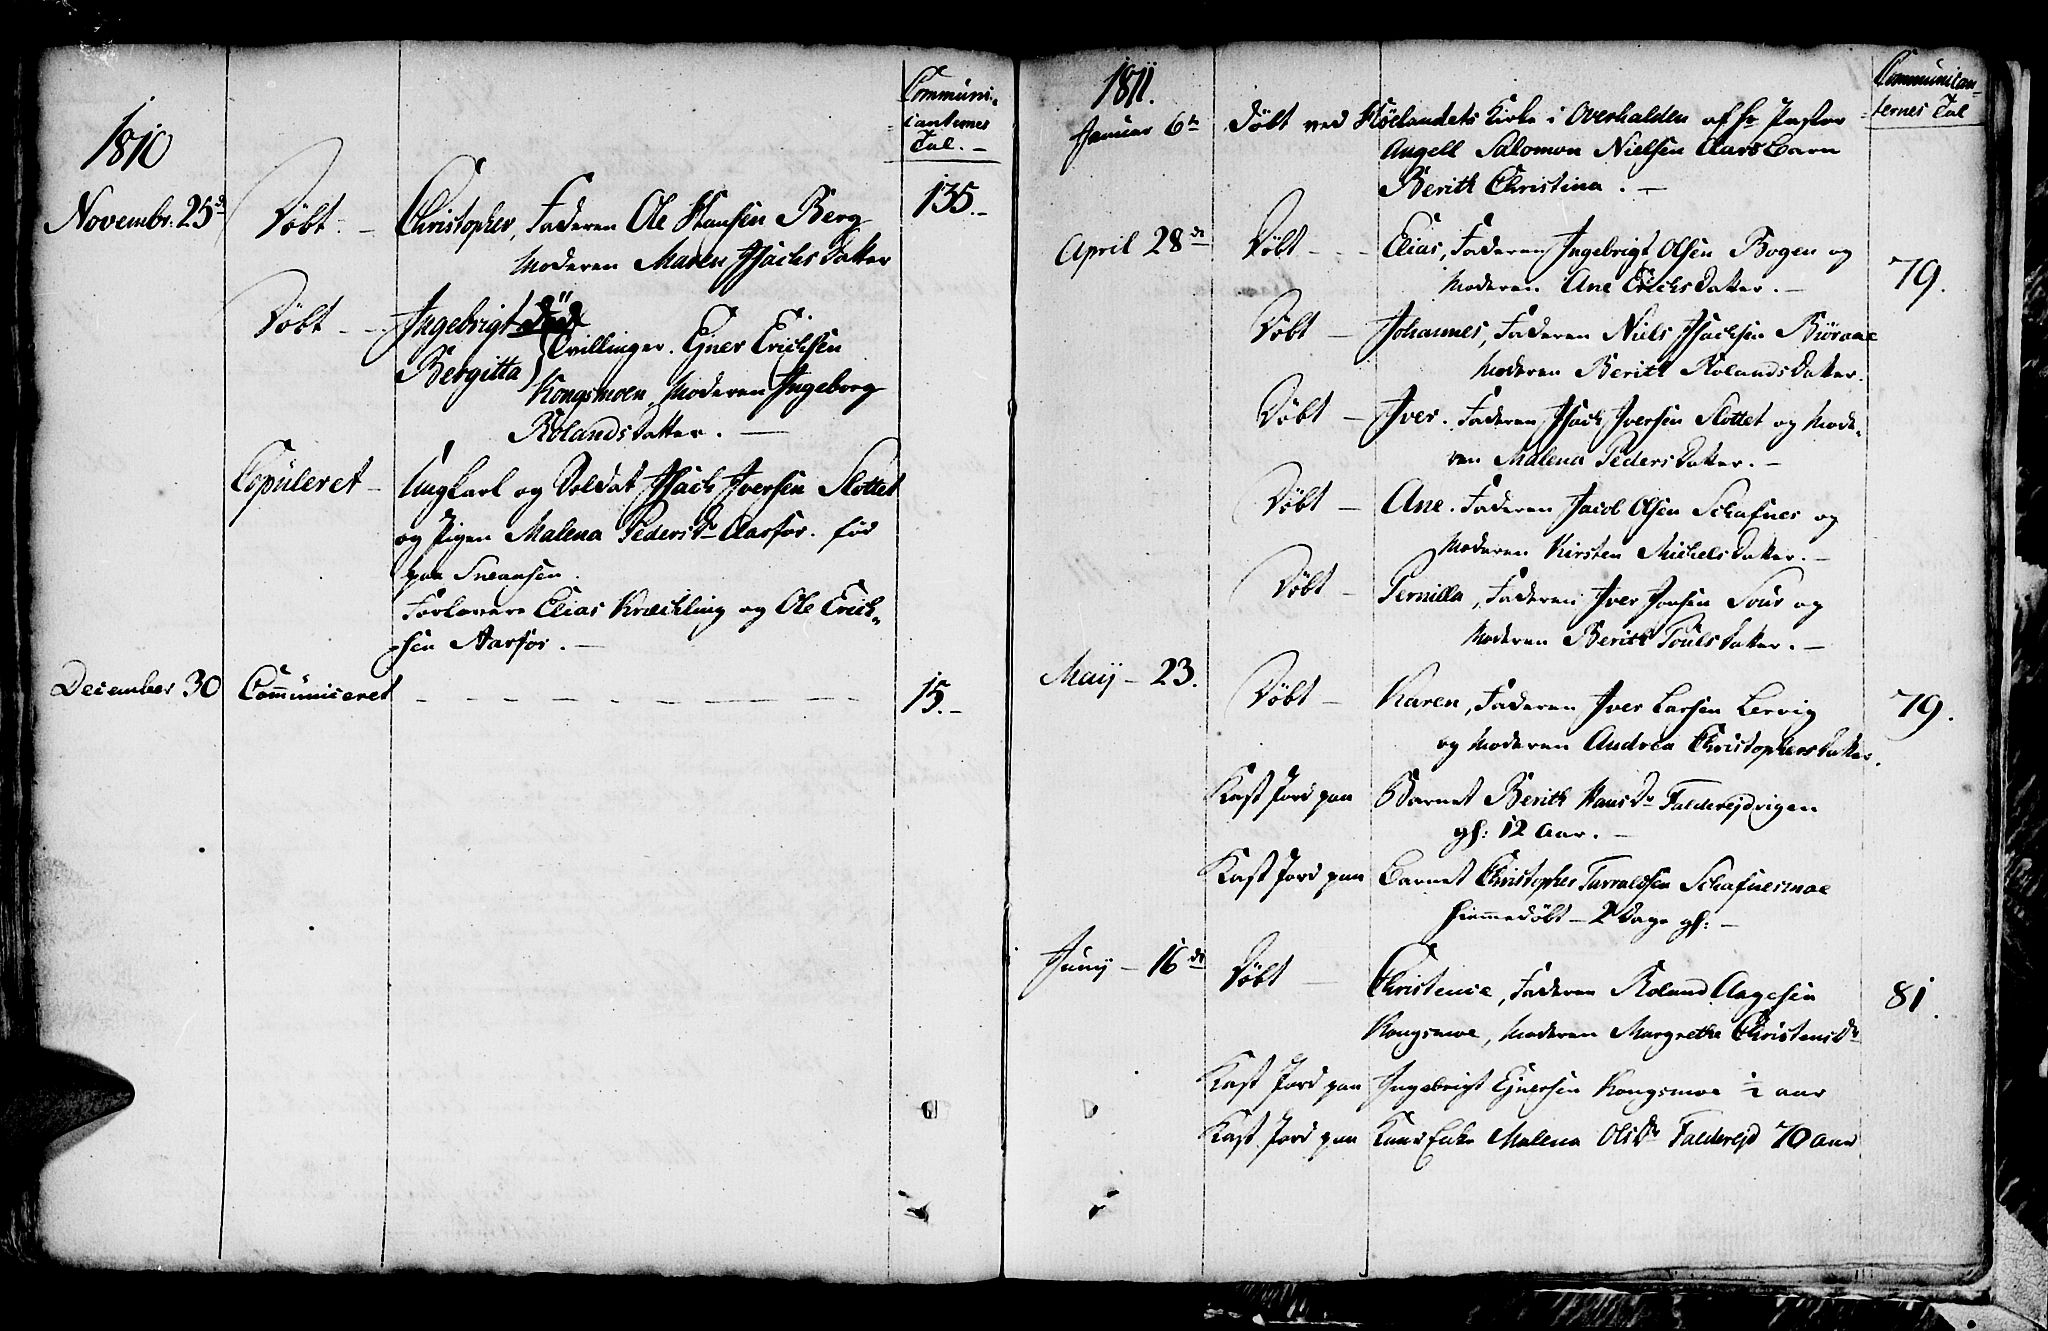 1810
Communi-
canternes
Tal. -
Novembr. 25d
Döbt. -
Christopher, Faderen Ole Hansen Berg
135. -
Moderen Maren Isachsdatter
Döbt - -
Ingebrigt död
Bergitta
Tvillinger. Ejner Erichsen
Kongsmoen, Moderen Ingeborg
Rolandsdatter. -
Copuleret -
Ungkarl og Soldat Isach Iversen Slottet
og Pigen Malena Pedersdr Aarfor. fød
paa
Forlovere Elias Kræckling og Ole Erich-
sen Aarfor. -
December 30
Communiceret - - - - - - - -
15. -
1811.
Communican-
ternes Tal
Januar 6te
Döbt ved Skölandets Kirke i Overhalden af Hr Pastor
Angell Salomon Nielsen Aars barn
Berith Christina. -
April 28de
Döbt - - -
Elias, Faderen Ingebrigt Olsen Bogen og
Moderen Ane Erichsdatter. -
79.
Döbt -
Johannes, Faderen Niels Isachsen Biöraae
Moderen Berith Rolandsdatter.
Döbt -
Iver. Faderen Isach Iversen Slottet og Mode-
ren Malena Pedersdatter. -
Döbt -
Ane. Faderen Jacob Olsen Schafnes og
Moderen Kirsten Michelsdatter. -
Döbt -
Pernilla, Faderen Iver Jonsen og
Moderen Berith Poulsdatter. -
Maij - 23.
Döbt -
Karen, Faderen Iver Larsen Lervig
og Moderen Andrea Christophersdatter.
79.
Kast Jord paa
Barnet Berith Hansdr Falderejdvigen
gl: 12 Aar. -
Kast Jord paa
Barnet Christopher Tarraldsen Schafnesmoe
hiemmedöbt - 2 Dage gl: -
Junij - 16de
Döbt -
Christence, Faderen Roland Aagesen
Kongsmoe, Moderen Margrethe Christensdr
81.
Kast Jord paa
Ingebrigt Ejnersen Kongsmoe ½ aar
Kast Jord paa
Enke Malena Olsdr Falderejd 70 aar